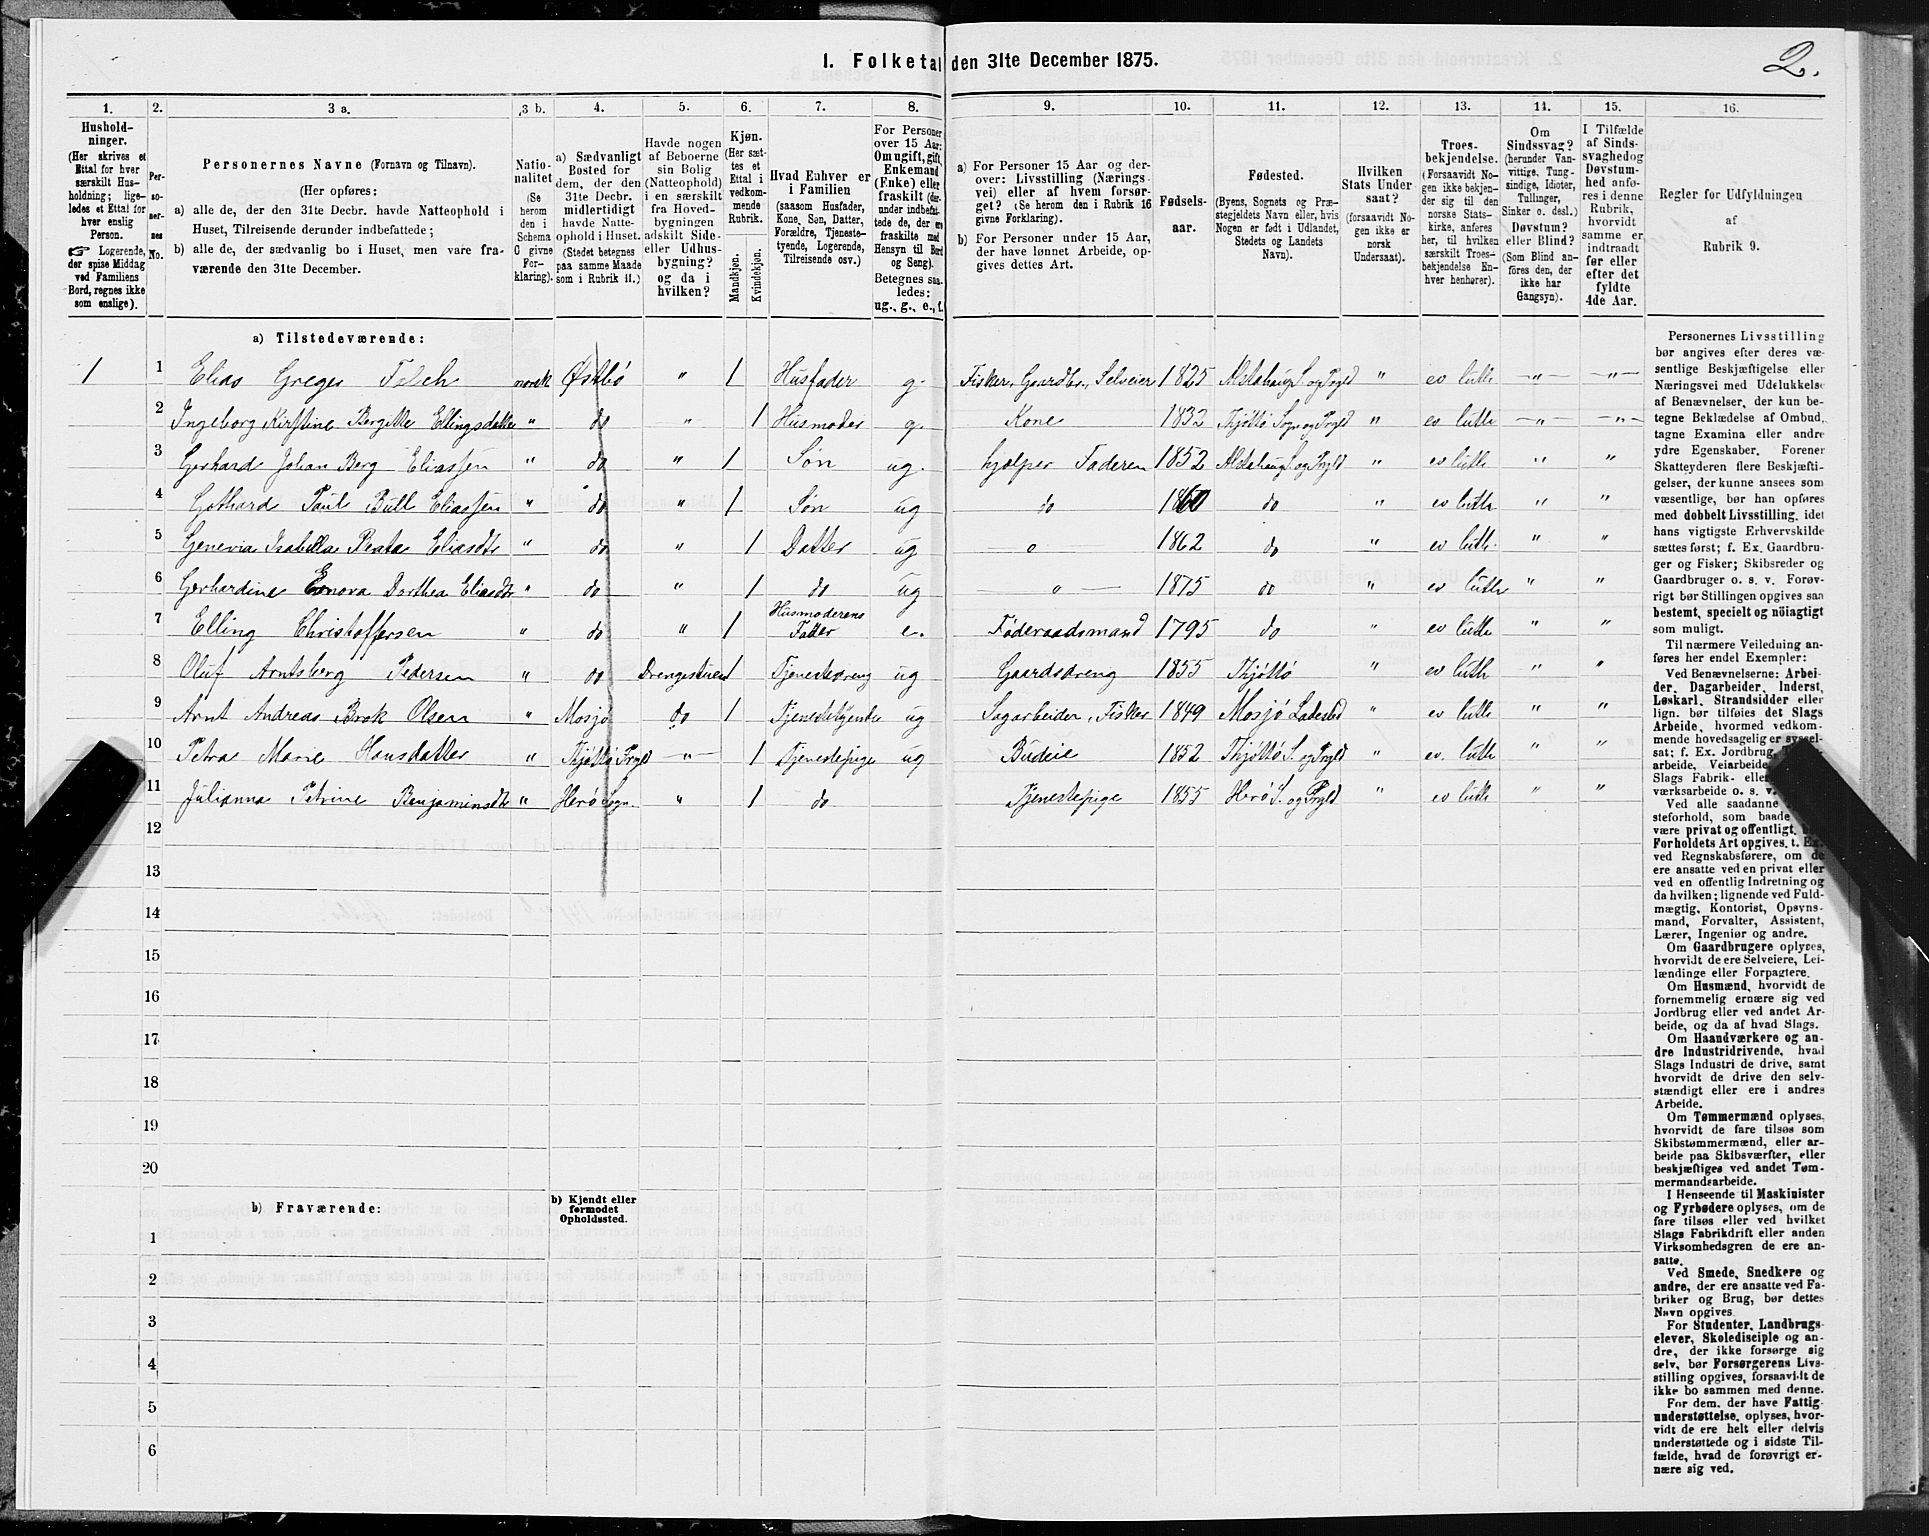 1. Folketal den 31te December 1875.
2.
1. 2. 3 a. 3 b. 4. 5. 6. 7. 8. 9. 10. 11. 12. 13. 14. 15. 16.
Hushold-
ninger.
(Her skrives et
Ettal for hver
særskilt Hus-
holdning; lige-
ledes et Ettal for
hver enslig
Person.
☞ Logerende,
der spise Middag
ved Familiens
Bord, regnes ikke
som enslige).
Per-
so-
ner-
nes
No.
Personernes Navne (Fornavn og Tilnavn).
(Her opføres:
a) alle de, der den 31te Decbr. havde Natteophold i
Huset, Tilreisende derunder indbefattede;
b) alle de, der sædvanlig bo i Huset, men vare fra-
værende den 31te December.
Natio-
nalitet
(Se
herom
den i
Schema
C givne
For-
klaring).
a) Sædvanligt
Bosted for
dem, der den
31te Decbr.
midlertidigt
havde Natte-
ophold i Huset.
(Stedet betegnes
paa samme Maade
som i Rubrik 11.)
Havde nogen
af Beboerne
sin Bolig
(Natteophold)
i en særskilt
fra Hoved-
bygningen
adskilt Side-
eller Udhus-
bygning?
og da i
hvilken?
Kjøn.
(Her sæt-
tes et
Ettal i
vedkom-
mende
Rubrik.
Mandkjøn.
Kvindekjøn.
Hvad Enhver er
i Familien
(saasom Husfader,
Kone, Søn, Datter,
Forældre, Tjeneste-
tyende, Logerende,
Tilreisende osv.)
For Personer
over 15 Aar:
Om ugift, gift,
Enkemand
(Enke) eller
fraskilt (der-
under indbefat-
tede de, der ere
fraskilte med
Hensyn til Bord
og Seng).
Betegnes saa-
ledes:
ug., g., e., f.
a) For Personer 15 Aar og der-
over: Livsstilling (Nærings-
vei) eller af hvem forsør-
get? (Se herom den i Rubrik 16
givne Forklaring).
b) For Personer under 15 Aar,
der have lønnet Arbeide, op-
gives dettes Art.
Fødsels-
aar.
Fødested.
(Byens, Sognets og Præ-
stegjeldets Navn eller, hvis
Nogen er født i Udlandet,
Stedets og Landets
Navn).
Hvilken
Stats Under-
saat?
(forsaavidt No-
gen ikke er
norsk
Undersaat).
Troes-
bekjendelse.
(Forsaavidt No-
gen ikke bekjen-
der sig til den
norske Stats-
kirke, anføres
her, til hvilken
særskilt Troes-
bekjendelse En-
hver henhører).
Om
Sindssvag?
(herunder Van-
vittige, Tung-
sindige, Idioter,
Tullinger,
Sinker o. desl.)
Døvstum?
eller Blind?
(Som Blind an-
føres den, der
ikke har
Gangsyn).
I Tilfælde
af Sinds-
svaghed og
Døvstum-
hed anfø-
res i denne
Rubrik,
hvorvidt
samme er
indtraadt
før eller
efter det
fyldte
4de Aar.
Regler for Udfyldningen
af
Rubrik 9.
a) Tilstedeværende:
1 1 Elias Greger Falch norsk Østbø " 1 Husfader g. Fisker, Gaardbr., Selveier 1825 Alstahaug S. og Prgld " ev luth — " — — " —
2 Ingeborg Kirstine Bergitte Ellingsdatter " do " 1 Husmoder g. Kone 1832 Thjøttø Sogn og Prgld " ev luth — " — — " —
3 Gerhard Johan Berg Eliassen " do " 1 Søn ug. hjælper Faderen 1852 Alstahaug S. og Prgld " ev luth " "
4 Gothard Paul Bull Eliassen " do " 1 Søn ug do 1860 do " ev luth " "
5 Genevia Isabella Beata Eliasdtr " do " 1 Datter ug " 1862 do " ev luth. " "
6 Gerhardine Dorthea Eliasdtr " do " 1 do ug — " — 1875 do " ev luth " "
7 Elling Christoffersen " do " 1 Husmoderens
Fader e. Føderaadsmand 1795 do " ev luth " "
8 Oluf Arntsberg Pedersen " do Drengestuen 1 Tjenestedreng ug Gaardsdreng 1855 Thjøttø " ev luth " "
9 Arnt Andreas Brok Olsen " Mosjø do 1 Tjenestetyende ug Sagarbeider, Fisker 1849 Mosjø Ladested " ev luth " "
10 Petra Marie Hansdatter " Thjøttø Prgld — " — 1 Tjenestepige ug Budeie 1852 Thjøttø S. og Prgld " ev. luth " "
11 Julianna Petrine Benjaminsdtr " Herø Sogn. " 1 do Tjenestepige 1855 Herø S. og Prgld " ev luth " "
12
13
14
15
16
17
18
19
20
b) Fraværende:
b) Kjendt eller
formodet
Opholdssted.
1
2
3
4
5
6
Personernes Livsstilling
bør angives efter deres væ-
sentlige Beskjæftigelse eller
Næringsvei med Udelukkelse
af Benævnelser, der kun be-
tegne Beklædelse af Ombud,
tagne Examina eller andre
ydre Egenskaber. Forener
Skatteyderen flere Beskjæfti-
gelser, der kunne ansees som
væsentlige, bør han opføres
med dobbelt Livsstilling, idet
hans vigtigste Erhvervskilde
sættes først; f. Ex. Gaardbru-
ger og Fisker; Skibsreder og
Gaardbruger o. s. v. Forøv-
rigt bør Stillingen opgives saa
bestemt, specielt og nøiagtigt
som muligt.
Til nærmere Veiledning an-
føres her endel Exempler:
Ved Benævnelserne: Arbei-
der, Dagarbeider, Inderst,
Løskarl, Strandsidder eller
lign. bør tilføies det Slags
Arbeide, hvormed vedkom-
mende hovedsagelig er syssel-
sat; f. Ex. Jordbrug,
arbeide, Veiarbeide,
Slags Fabrik- eller
værksarbeide o. s. v.
Ved alle saadanne
steforhold, som baade
være privat og offentligt,
Forholdets Art opgives, t. Ex.
ved Regnskabsførere, om de
ere ansatte ved en privat eller
ved en offentlig Indretning og
da hvilken; lignende ved Fuld-
mægtig, Kontorist, Opsyns-
mand, Forvalter, Assistent,
Lærer, Ingeniør og andre.
Om Gaardbrugere oplyses,
hvorvidt de ere Selveiere, Lei-
lændinge eller Forpagtere.
Om Husmænd, hvorvidt de
fornemmelig ernære sig ved
Jordbrug eller ved andet Ar-
beide, og da af hvad Slags.
Om Haandværkere og an-
dre Industridrivende, hvad
Slags Industri de drive, samt
hvorvidt de drive den selv-
stændigt eller ere i andres
Arbeide.
Om Tømmermænd oplyses,
hvorvidt de fare tilsøs som
Skibstømmermænd, eller ar-
beide paa Skibsværfter, eller
beskjæftiges ved andet Tøm-
mermandsarbeide.
I Henseende til Maskinister
og Fyrbødere oplyses, om de
fare tilsøs eller ved hvilket
Slags Fabrikdrift eller anden
Virksomhedsgren de ere an-
satte.
Ved Smede, Snedkere og
andre, der ere ansatte ved Fa-
briker og Brug, bør dettes
Navn opgives.
For Studenter, Landbrugs-
elever, Skoledisciple og an-
dre, der ikke forsørge sig
selv, bør Forsørgerens Livs-
stilling opgives, forsaavidt de
ikke bo sammen med denne.
For dem, der have Fattig-
understøttelse, oplyses, hvor-
vidt de ere helt eller delvis
understøttede og i sidste Til-
fælde, hvad de forøvrigt er-
nære sig ved.